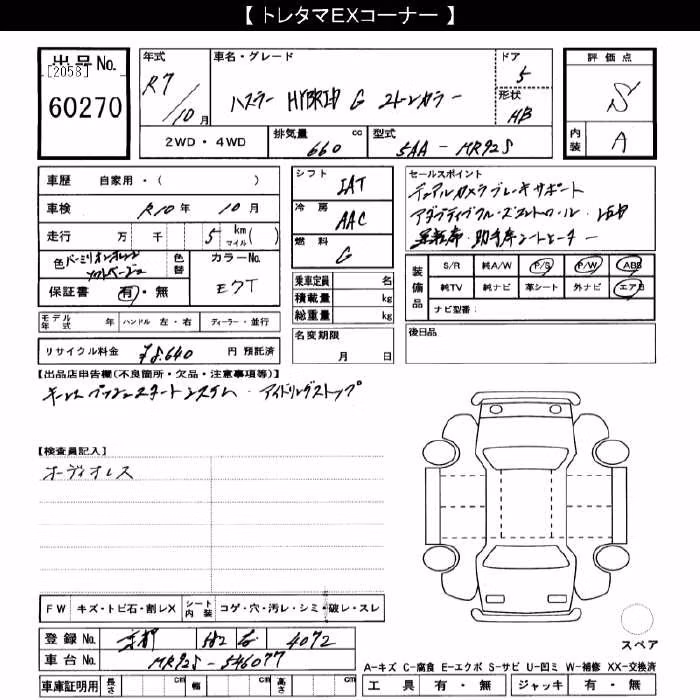 【 トレタマEXコーナー 】
出品 No.
[2058]
60270
年式
R7/10月
車名・グレード
ハスラー HYBRID G 2トーンカラー
ドア
5
形状
HB
評価点
S
内装
A
2WD・4WD
排気量 660 cc
型式 5AA-MR92S
車歴 自家用・( )
車検 R10年 10月
走行 万 千 5 km マイル( )
色 バーミリオンオレンジ
ソフトベージュ
色替
カラーNo.
E7T
保証書 有・無
モデル年式 年 ハンドル 左・右 ディーラー・並行
リサイクル料金 ¥8,640 円 預託済
シフト
IAT
冷房
AAC
燃料
G
乗車定員 名
積載量 kg
総重量 kg
名変期限
月 日
セールスポイント
デュアルカメラブレーキサポート
アダプティブクルーズコントロール・
運転席・助手席シートヒーター
装備品
S/R 純A/W P/S P/W ABS
純TV 純ナビ 革シート 外ナビ エアB
ナビ型番:
後日品
【出品店申告欄(不良箇所・欠品・注意事項等)】
キーレスプッシュスタートシステム・アイドリングストップ
【検査員記入】
オーディオレス
FW キズ・トビ石・割レX シート内装 コゲ・穴・汚レ・シミ・破レ・スレ
登録 No. 京都 4072
車台 No. MR92S-546077
車庫証明用 長さ cm 幅 cm 高さ cm
スペア
A-キズ C-腐食 E-エクボ S-サビ U-凹ミ W-補修 XX-交換済
工具 有・無 ジャッキ 有・無